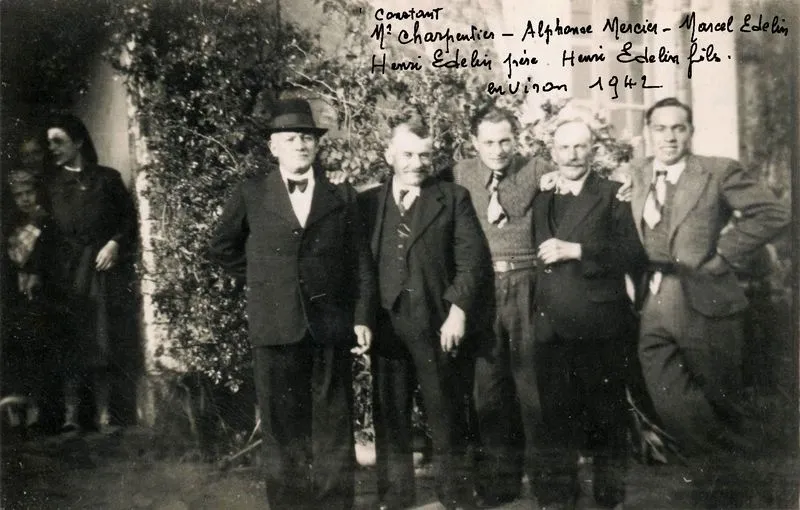 Constant
Mr Charpentier - Alphonse Mercier - Marcel Edelin
Henri Edelin père. Henri Edelin fils.
environ 1942